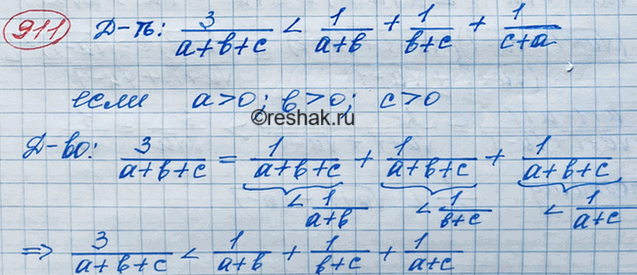 911 Д-ть: 3/(a+b+c) < 1/(a+b) + 1/(b+c) + 1/(c+a)
если a>0; b>0; c>0
©reshak.ru
Д-во: 3/(a+b+c) = 1/(a+b+c) + 1/(a+b+c) + 1/(a+b+c)
< 1/(a+b) < 1/(b+c) < 1/(a+c)
=> 3/(a+b+c) < 1/(a+b) + 1/(b+c) + 1/(a+c)